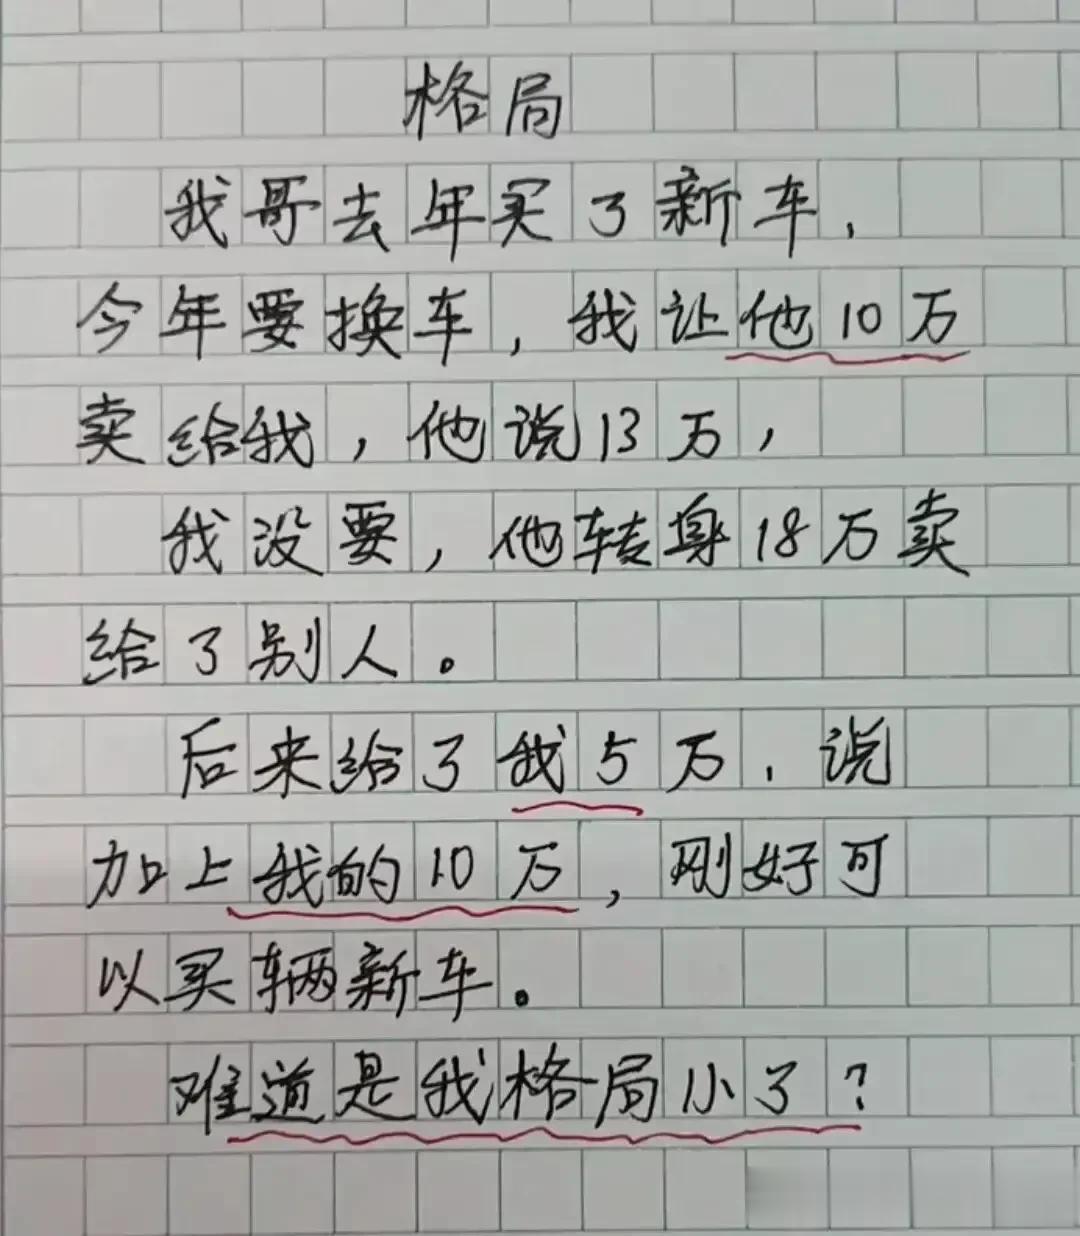 格局
我哥去年买了新车，
今年要换车，我让他10万
卖给我，他说13万，
我没要，他转身18万卖
给了别人。
后来给了我5万，说
加上我的10万，刚好可
以买辆新车。
难道是我格局小了？